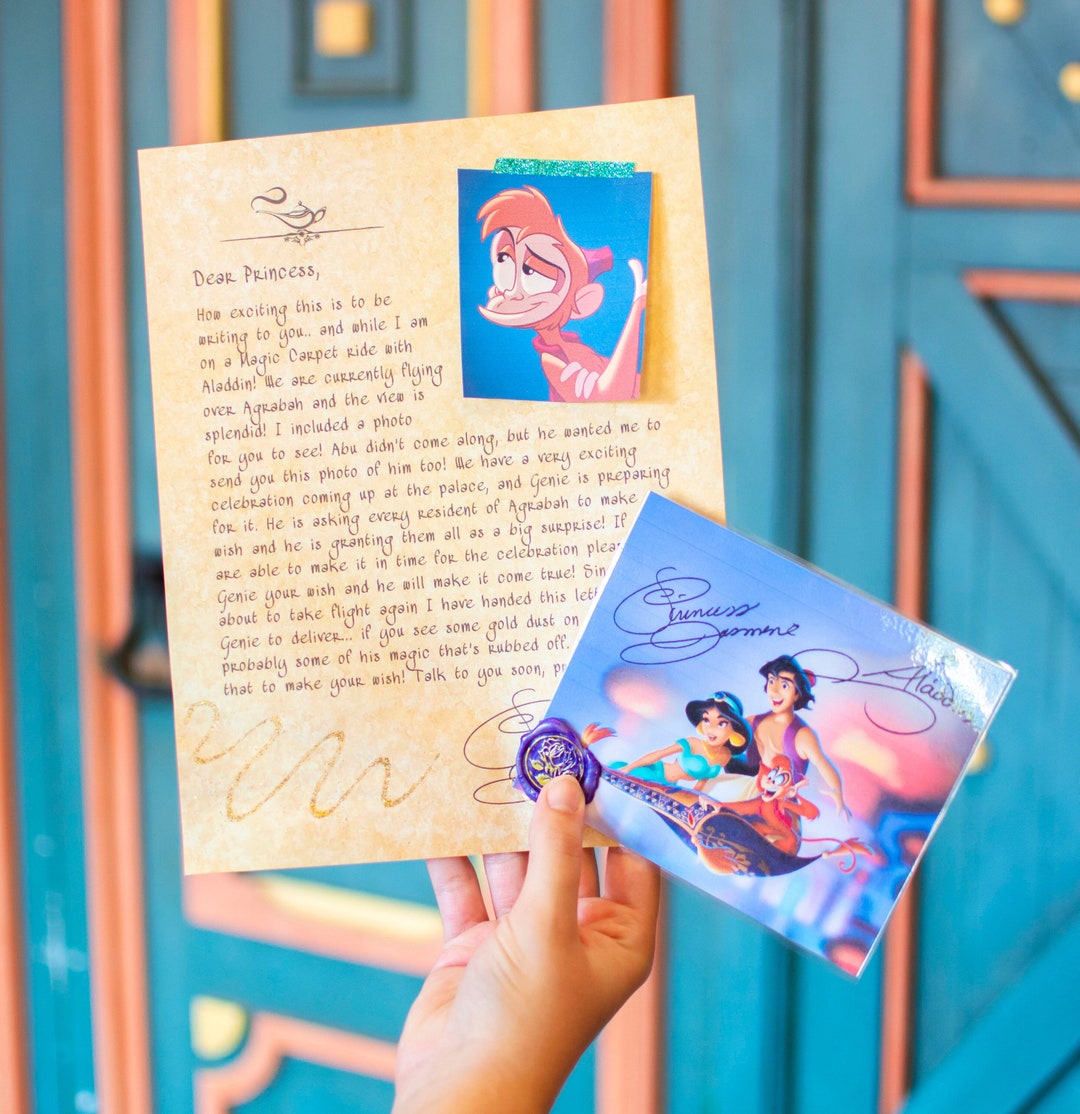 Dear Princess,
How exciting this is to be
writing to you.. and while I am
on a Magic Carpet ride with
Aladdin! We are currently flying
over Agrabah and the view is
splendid! I included a photo
for you to see! Abu didn't come along, but he wanted me to
send you this photo of him too! We have a very exciting
celebration coming up at the palace, and Genie is preparing
for it. He is asking every resident of Agrabah to make
wish and he is granting them all as a big surprise! If
are able to make it in time for the celebration
Genie your wish and he will make it come true!
about to take flight again I have handed this
Genie to deliver.. if you see some gold dust on
probably some of his magic that's rubbed off.
that to make your wish! Talk to you soon,
Princess
Jasmine